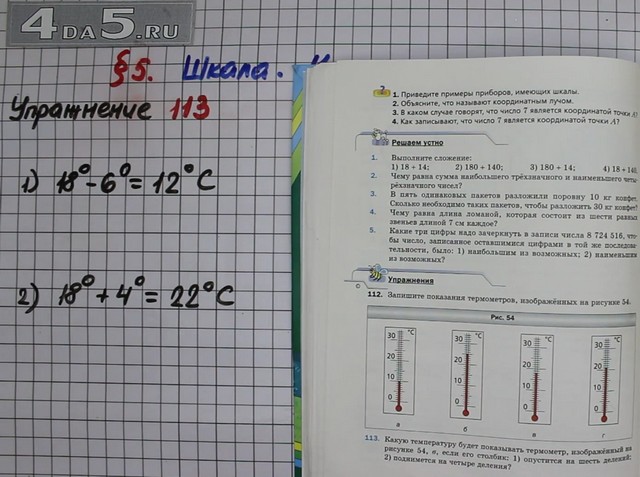 4DA5.RU
§5. Шкала.
Упражнение 113
1) 18° - 6° = 12°C
2) 18° + 4° = 22°C
?
1. Приведите примеры приборов, имеющих шкалы.
2. Объясните, что называют координатным лучом.
3. В каком случае говорят, что число 7 является координатой точки A?
4. Как записывают, что число 7 является координатой точки A?
Решаем устно
1. Выполните сложение:
1) 18 + 14; 2) 180 + 140; 3) 180 + 14; 4) 18 + 140.
2. Чему равна сумма наибольшего трёхзначного и наименьшего четы-
рёхзначного чисел?
3. В пять одинаковых пакетов разложили поровну 10 кг конфет.
Сколько необходимо таких пакетов, чтобы разложить 30 кг конфет?
4. Чему равна длина ломаной, которая состоит из шести равных
звеньев длиной 7 см каждое?
5. Какие три цифры надо зачеркнуть в записи числа 8 724 516, что-
бы число, записанное оставшимися цифрами в той же последова-
тельности, было: 1) наибольшим из возможных; 2) наименьшим
из возможных?
Упражнения
112. Запишите показания термометров, изображённых на рисунке 54.
Рис. 54
°C °C °C °C
30 30 30 30
20 20 20 20
10 10 10 10
0 0 0 0
а б в г
113. Какую температуру будет показывать термометр, изображённый на
рисунке 54, в, если его столбик: 1) опустится на шесть делений;
2) поднимется на четыре деления?